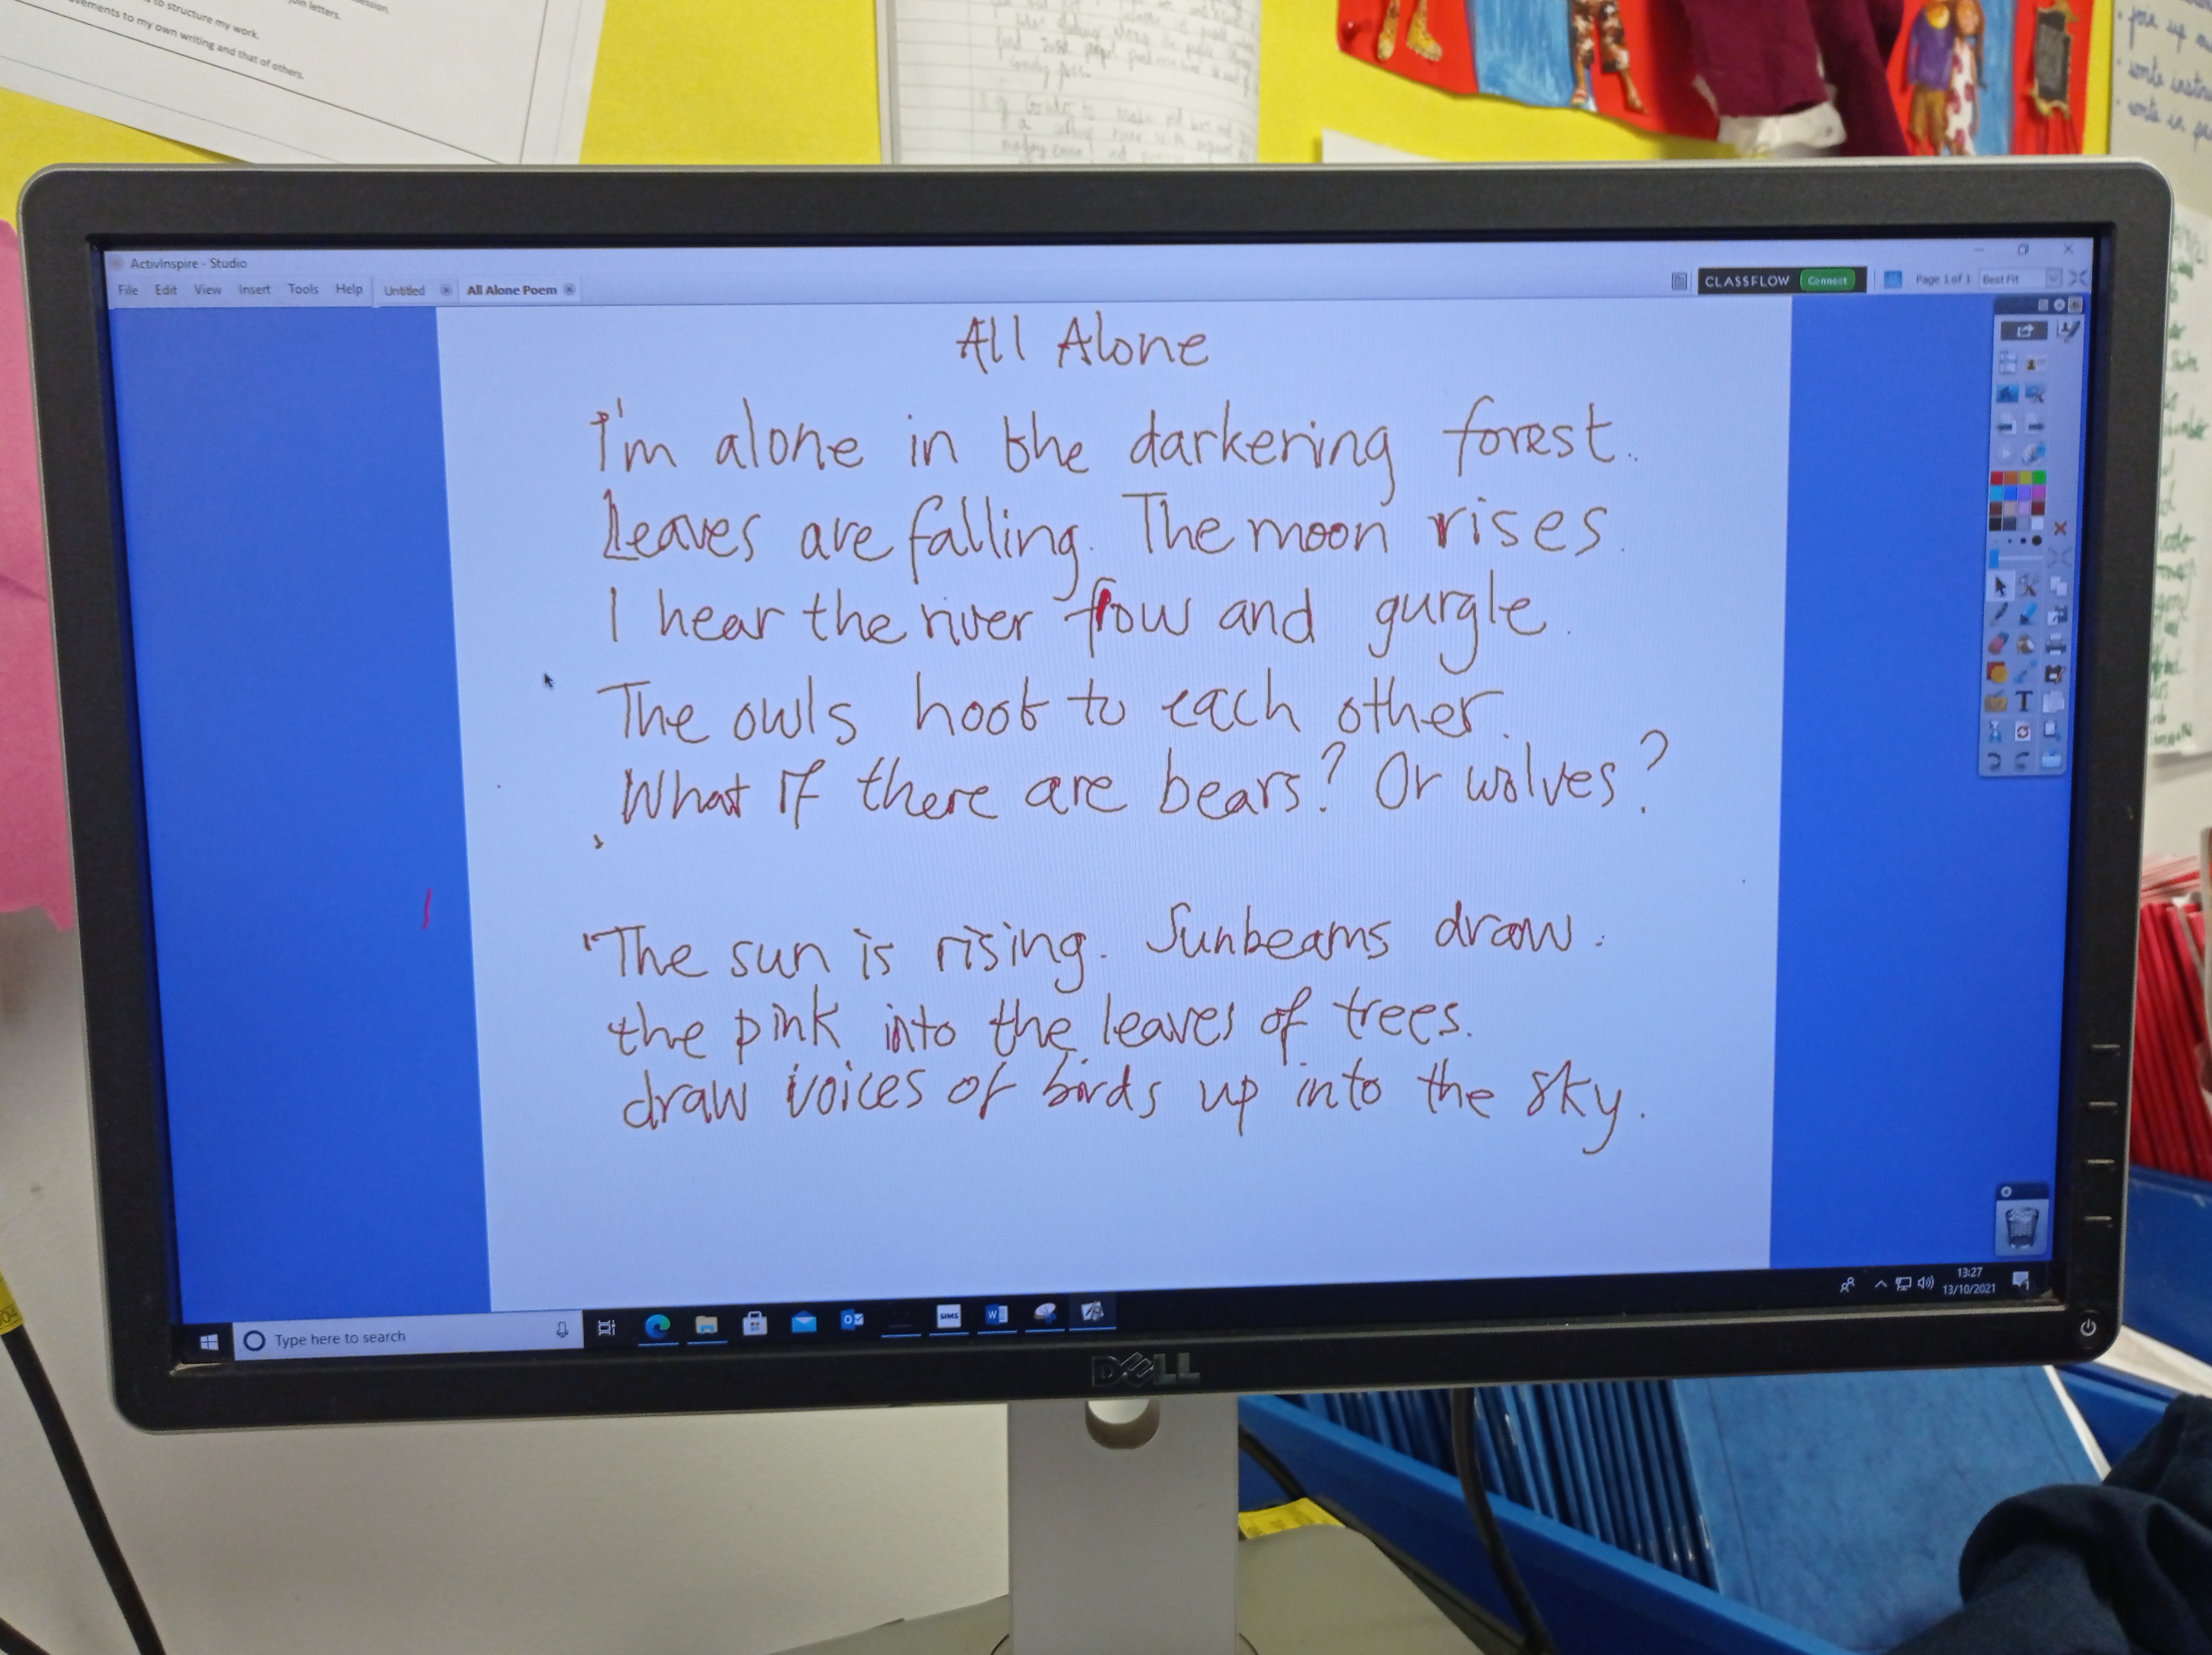 ession.
oin letters.
to structure my work.
vements to my own writing and that of others.
ActivInspire - Studio
File Edit View Insert Tools Help Untitled All Alone Poem CLASSFLOW Connect Page 1 of 1 Best Fit
All Alone
I'm alone in the darkering forest.
Leaves are falling. The moon rises.
I hear the river flow and gurgle.
The owls hoot to each other.
What if there are bears? Or wolves?
The sun is rising. Sunbeams draw.
the pink into the leaves of trees.
draw voices of birds up into the sky.
T
Type here to search
SIMS
13:27
13/10/2021
DELL